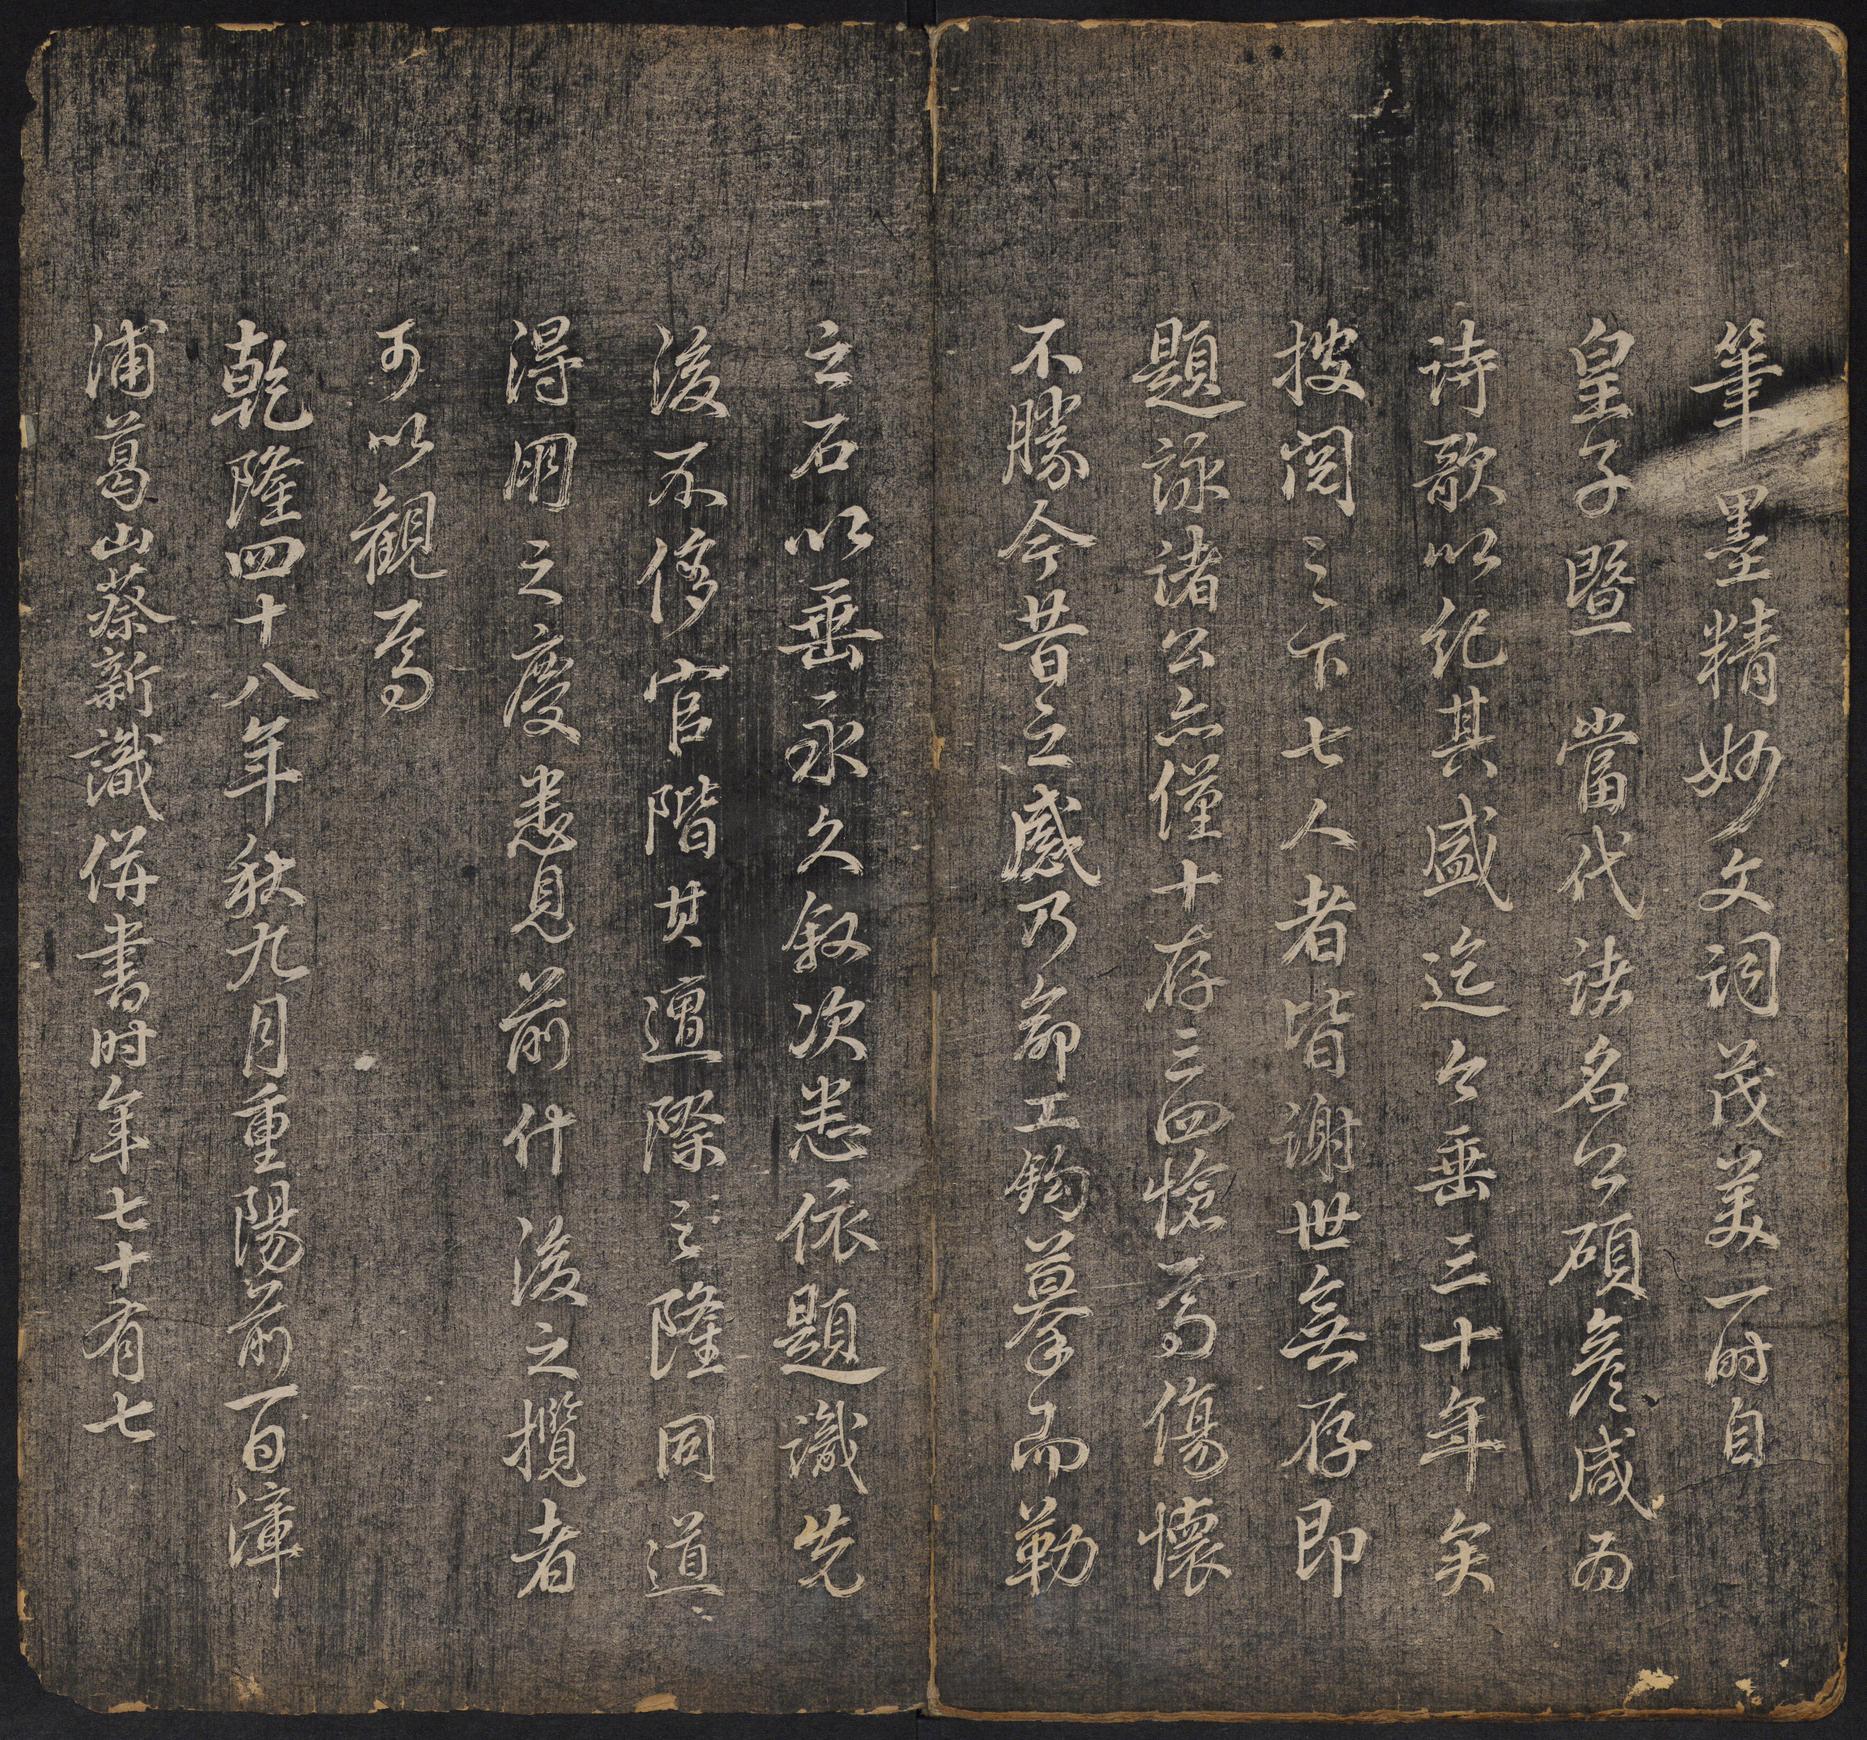 筆墨精妙文詞茂美一時自
皇子暨當代諸名公碩彥咸爲
詩歌以紀其盛迄今垂三十年矣
披閱之下七人者皆謝世無存即
題詠諸公亦僅十存三四愴焉傷懷
不勝今昔之感乃命工鉤摹而勒
之石以垂永久叙次悉依題識先
後不移官階其遭際之隆同道
得朋之慶悉見前什後之攬者
可以觀焉
乾隆四十八年秋九月重陽前一日漳
浦葛山蔡新識併書時年七十有七